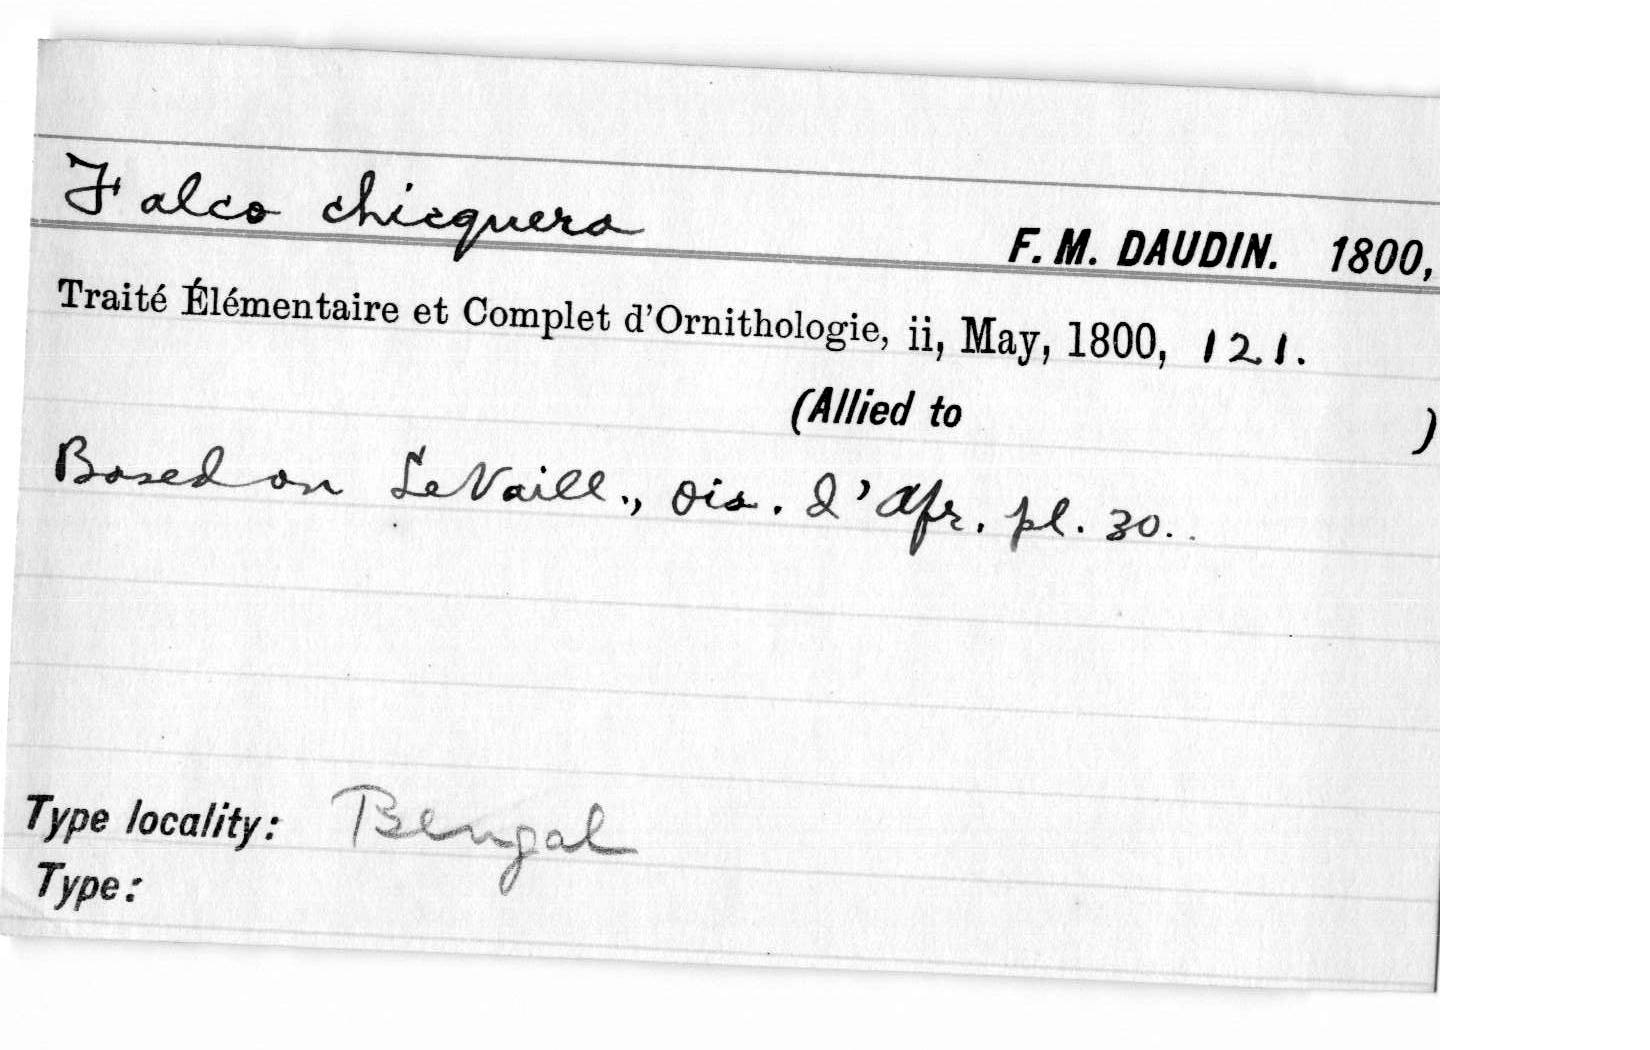 Falco chicquera
F. M. DAUDIN. 1800,
Traité Élémentaire et Complet d'Ornithologie, ii, May, 1800, 121.
(Allied to )
Based on LeVaill., Ois. d'Afr. pl. 30..
Type locality: Bengal
Type: